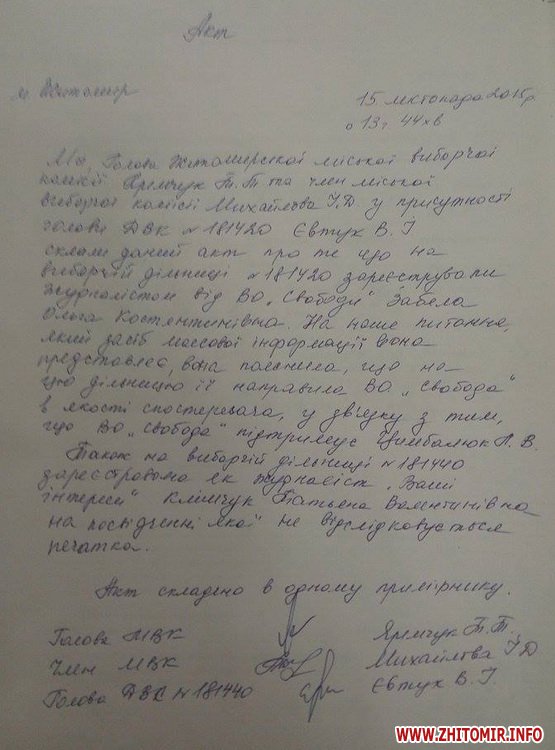 Акт
м. Житомир
15 листопада 2015р
о 13г 44хв
Мы, Голова Житомирської міської виборчої
комісії Яремчук Т.Т та член міської
виборчої комісії Михайлова І,Д у присутності
голови ДВК №181420 Євтук В. І
склали даний акт про те що на
виборчій дільниці №181420 зареєстрували
журналістом від ВО „Свободи"
Ольга Костентинівна. На наше питання,
який засіб массової інформації вона
представляє, вона пояснила, що на
цю дільницю її направила ВО „Свобода"
в якості спостерегача, у зв'язку з тим,
що ВО „Свобода" підтримує Цимбалюк Л. В.
Також на виборчій дільниці №181440
зареєстрована як журналіст „Ваші
інтереси" Клімчук Татьена Валентинівна
на посвідченні якої не відслідковується
печатка.
Акт складено в одному примірнику.
Голова МВК Яремчук Т.Т.
Член МВК Михайлова І Д
Голова ДВК №181440 Євтук В. І.
WWW.ZHITOMIR.INFO